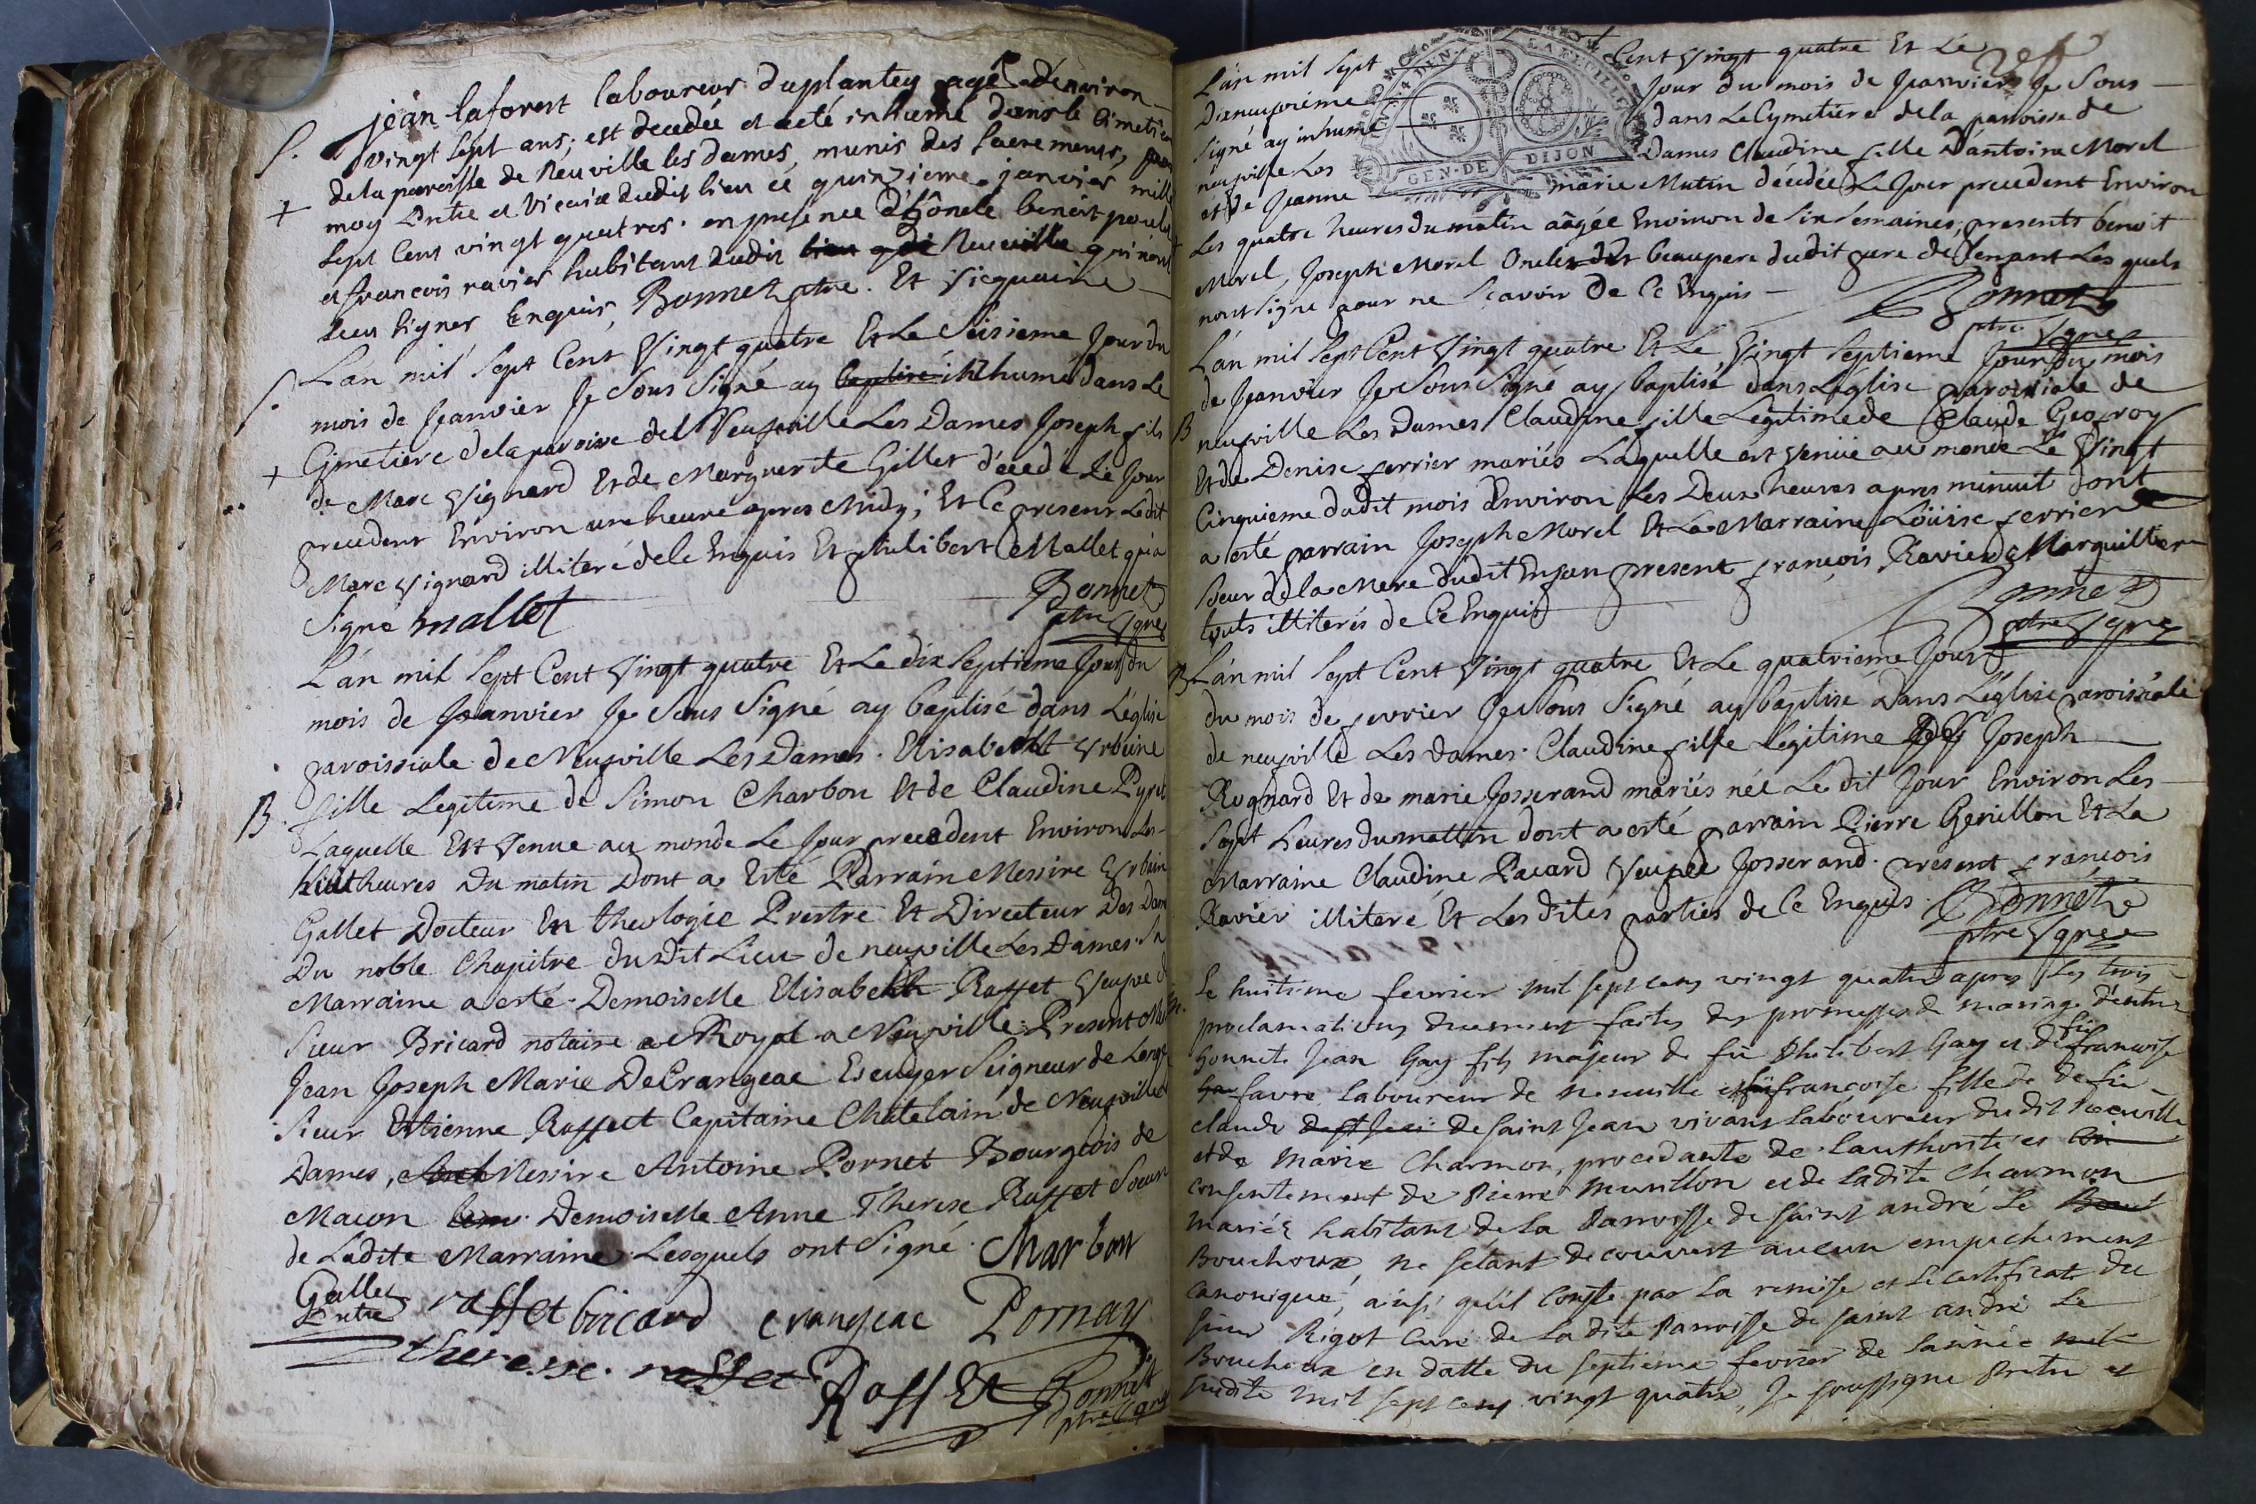 jean laforest laboureur du plantey agé d'environ
vingt sept ans, est decedé et a eté inhumé dans le Cimetiere
de la paroisse de Neuville les dames, munis des sacremens, par
moy Prêtre et Vicaire dudit lieu ce quinzieme janvier mille
sept cent vingt quatres. en presence d'hônete benoit
et francois ravier habitant dudit Neuville qui n'ont
sceu signer Enquis, Bonnet ptre. Et Vicquaire
S.
+
L'an mil Sept Cent Vingt quatre Et Le Seisieme Jour du
mois de Jeanvier Je Sous Signé ay baptisé inhumé dans Le
Cymetiere de la paroisse de Neufville Les Dames Joseph fils
de Marc Vignard Et de Marguerite Gillet décedé Le Jour
precedent Environ une heure apres Midy; Et Ce present Ledit
Marc Vignard illiteré de Ce Enquis Et philibert Mallet qui a
Signé mallet
Bonnet
ptre Vgre
S.
+
L'an mil Sept Cent Vingt quatre Et Le dix Septieme Jour du
mois de Jeanvier Je Sous Signé ay baptisé dans L'église
paroissiale de Neufville Les Dames. Elisabeth Vrbaine
B. fille Legitime de Simon Charbon Et de Claudine Pyret
Laquelle Est Venue au monde Le Jour precedent Environ Les
huit heures Du matin Dont a Esté Parrain Messire Vrbain
Gallet Docteur En theologie Prestre Et Directeur Des Dames
Du noble Chapitre du Dit Lieu de neufville Les Dames. Sa
Marraine a esté Demoiselle Elisabeth Raffet Veufve de
Sieur Bricard notaire Royal a Neufville. Present
Jean Joseph Marie DeCrangeac Escuyer Seigneur de
Sieur Estienne Raffet Capitaine Châtelain de Neufville
Dames, Messire Antoine Pornet Bourgeois de
Macon Demoiselle Anne Therese Raffet Soeur
de Ladite Marraine Lesquels ont Signé. Charbon
Gallet
Prtre raffet bricard crangeac Pornay
therese raffet Raffet Bonnet
ptre Vgre
L'an mil Sept Cent Vingt quatre Et Le
Dixneuvieme Jour du mois de Jeanvier Je Sous
Signé ay inhumé dans Le Cymetiere de la paroisse de
neufville Les Dames Claudine fille D'antoine Morel
et de Jeanne marie Mutin décedée Le Jour precedent Environ
Les quatre heures du matin aâgée Environ de Six Semaines, presents benoit
Morel, Joseph Morel Oncle beaupere dudit pere de Lenfant Les quels
nont Signé pour ne Sçavoir De Ce Enquis
Bonnet
ptre Vgre
INTENDEN LA FEUILLE GEN·DE DIJON
L'an mil Sept Cent Vingt quatre Et Le Vingt Septieme Jour du mois
de Jeanvier Je Sous Signé ay baptisé dans Léglise paroissiale de
B neufville Les Dames Claudine fille Legitime de Claude Geofroy
Et de Denise ferrier mariés Laquelle est Venüe au monde Le Vingt
Cinquieme dudit mois Environ Les Deux heures apres minuit dont
a esté parrain Joseph Morel Et La Marraine Loüise ferrier
Soeur de la Mere dudit Enfan present françois Ravier Marguillier
touts illiterés de Ce Enquis
Bonnet
ptre Vgre
B L'an mil Sept Cent Vingt quatre Et Le quatrieme Jour
du mois de fevrier Je Sous Signé ay baptisé Dans L'église paroissiale
de neufville Les Dames. Claudine fille Legitime de Joseph
Rognard Et de marie Josserand mariés née Le dit Jour Environ Les
Sept heures du mattin dont a esté parrain Pierre Genillon Et La
Marraine Claudine Pacard Veufve Josserand. present françois
Ravier illiteré Et Les dites parties de Ce Enquis. Bonnet
ptre Vgre
Le huitieme fevrier mil sept cens vingt quatre apres les trois
proclamations duement faites des promesses de mariage d'entre
honnete Jean Gay fils majeur de fû Philibert Gay et de fûe francoise
favre laboureur de neuville et francoise fille de defû
claude de saint Jean vivant laboureur dudit Neuville
et de Marie Charmon, procedante de l'authorité et
consentement de Pierre Murillon et de ladite Charmon
mariés habitant de la Parroisse de saint andré le
Bouchoux, ne sétant decouvert aucun empechement
canonique, ainsi qu'il conste par la remise et le certificat du
sieur Rigot Curé de la dite Parroisse de saint andré le
Bouchoux en datte du septieme fevrier de l'année
susdite mil sept cens vingt quatre, Je soussigné Pretre et